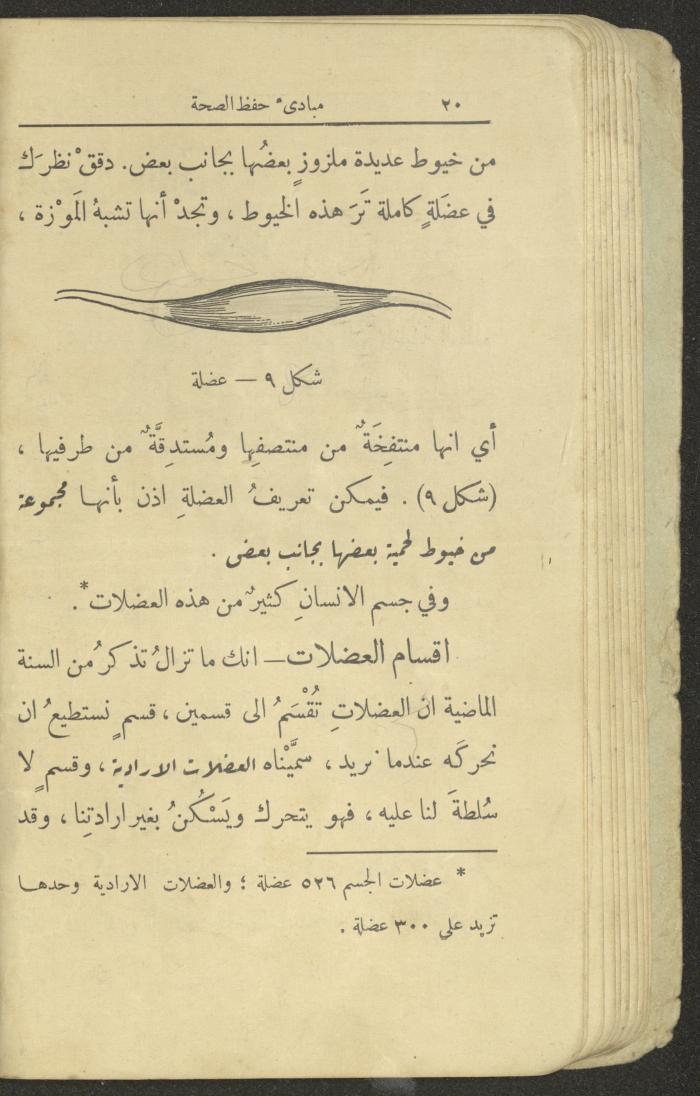 ٢٠ مبادىء حفظ الصحة
من خيوط عديدة ملزوزٍ بعضُها بجانب بعض. دققْ نظرَك
في عضَلةٍ كاملة تَرَ هذه الخيوط ، وتجدْ أنها تشبهُ المَوْزة ،
شكل ٩ — عضلة
أي انها منتفِخَةٌ من منتصفِها ومُستدِقَّةٌ من طرفيها ،
(شكل ٩) . فيمكن تعريفُ العضلةِ اذن بأنها مجموعة
من خيوط لحمية بعضها بجانب بعض .
وفي جسم الانسانِ كثيرٌ من هذه العضلات* .
اقسام العضلات — انك ما تزالُ تذكرُ من السنة
الماضية ان العضلاتِ تُقْسَمُ الى قسمين ، قسمٍ نستطيعُ ان
نحركَه عندما نريد ، سمَّيْناه العضلات الارادية ، وقسمٍ لا
سُلطةَ لنا عليه ، فهو يتحرك ويَسْكُنُ بغير ارادتِنا ، وقد
* عضلات الجسم ٥٢٦ عضلة ؛ والعضلات الارادية وحدها
تزيد على ٣٠٠ عضلة .